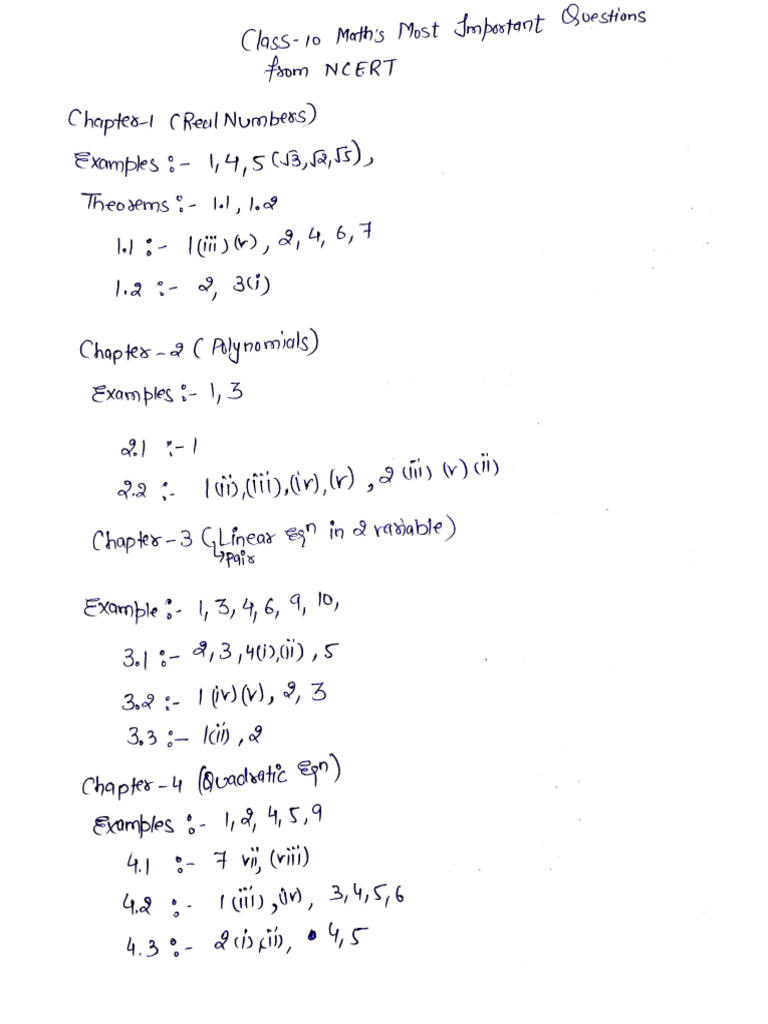 Class-10 Math's Most Important Questions
from NCERT
Chapter-1 (Real Numbers)
Examples :- 1,4,5(√3,√2,√5),
Theorems :- 1.1, 1.2
1.1 :- 1(iii)(v), 2, 4, 6, 7
1.2 :- 2, 3(i)
Chapter-2 (Polynomials)
Examples :- 1,3
2.1 :- 1
2.2 :- 1(ii),(iii),(iv),(v), 2(iii)(v)(ii)
Chapter-3 (Linear Eqn in 2 variable)
↳Pair
Example :- 1,3,4,6,9,10,
3.1 :- 2,3,4(i),(ii),5
3.2 :- 1(iv)(v), 2, 3
3.3 :- 1(ii), 2
Chapter-4 (Quadratic Eqn)
Examples :- 1,2,4,5,9
4.1 :- 7 vii,(viii)
4.2 :- 1(iii),(iv), 3,4,5,6
4.3 :- 2(i),(ii), 4,5